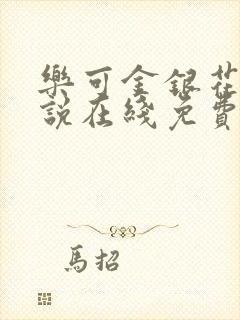 樂可金銀花
說在綫免費
馬招